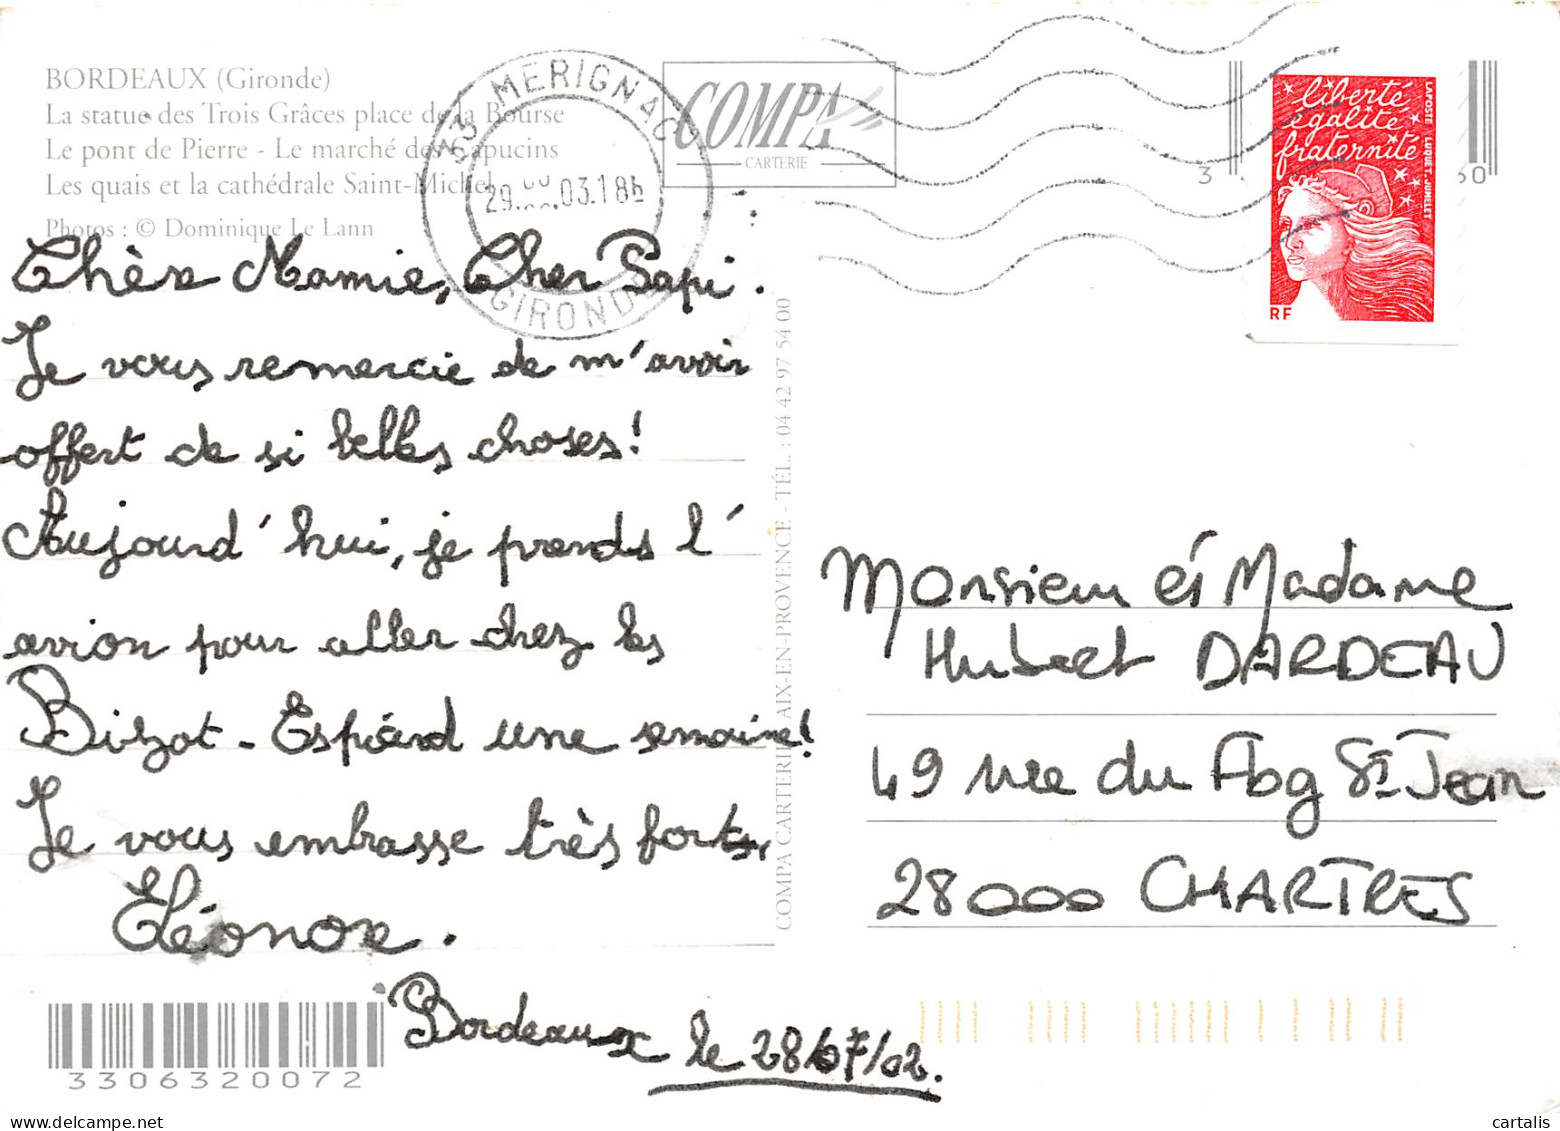 BORDEAUX (Gironde)
La statue des Trois Grâces place de la Bourse
Le pont de Pierre - Le marché des Capucins
Les quais et la cathédrale Saint-Michel
Photos : © Dominique Le Lann
33 MERIGNAC
29. .03.18h
GIRONDE
COMPA
CARTERIE
liberté
égalité
fraternité
LA POSTE LUQUET-JUMELET
RF
Chère Mamie, Cher Papi.
Je vous remercie de m'avoir
offert de si belles choses!
Aujourd'hui, je prends l'
avion pour aller chez les
Bizot - Espérand une semaine!
Je vous embrasse très forts,
Eléonore.
Bordeaux le 28/07/02.
COMPA CARTERIE AIX-EN-PROVENCE - TÉL. : 04 42 97 54 00
Monsieur et Madame
Hubert DARDEAU
49 rue du Fbg St Jean
28000 CHARTRES
3306320072
cartalis